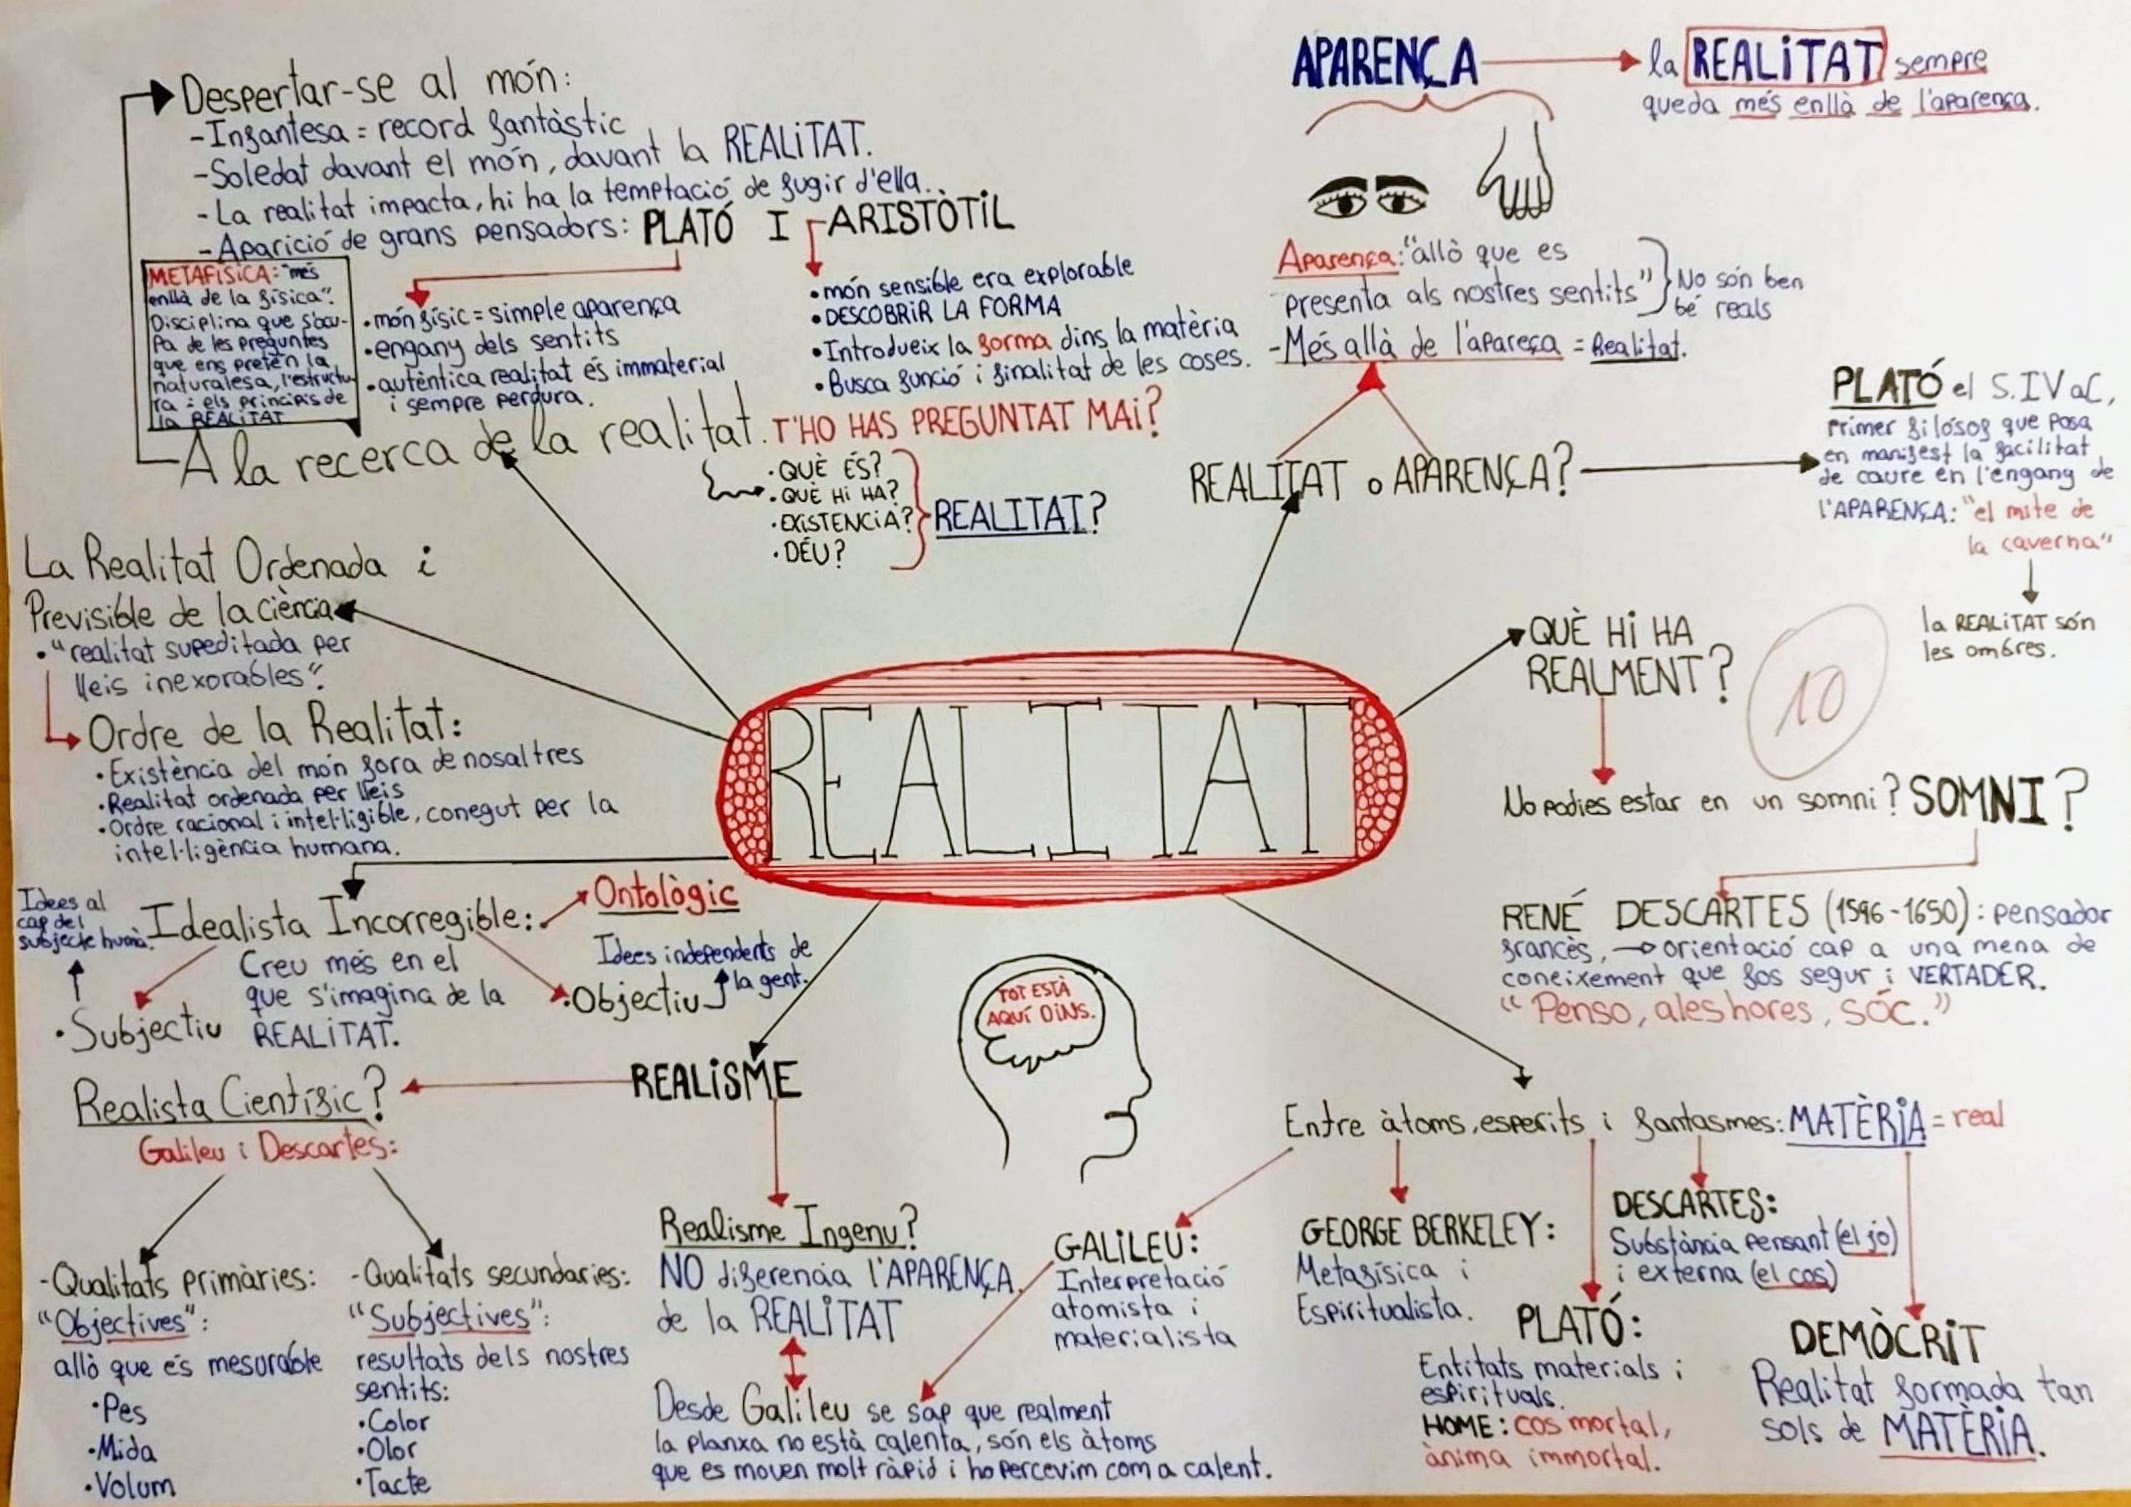 Despertar-se al món:
-Infantesa = record fantàstic
-Soledat davant el món, davant la REALITAT.
-La realitat impacta, hi ha la temptació de fugir d'ella.
-Aparició de grans pensadors: PLATÓ I ARISTÒTIL
METAFÍSICA: "més
enllà de la física".
Disciplina que s'ocu-
pa de les preguntes
que ens pretén la
naturalesa, l'estructu-
ra i els principis de
la REALITAT
•món físic = simple aparença
•engany dels sentits
•autèntica realitat és immaterial
i sempre perdura.
•món sensible era explorable
•DESCOBRIR LA FORMA
•Introdueix la forma dins la matèria
•Busca funció i finalitat de les coses.
A la recerca de la realitat.
T'HO HAS PREGUNTAT MAI?
•QUÈ ÉS?
•QUÈ HI HA?
•EXISTENCIA?
•DÉU?
REALITAT?
APARENÇA
la REALITAT sempre
queda més enllà de l'aparença.
Aparença: "allò que es
presenta als nostres sentits"
No són ben
bé reals
-Més allà de l'apareça = Realitat.
REALITAT o APARENÇA?
PLATÓ el S.IV aC,
primer filósof que posa
en manifest la facilitat
de caure en l'engany de
l'APARENÇA: "el mite de
la caverna"
la REALITAT són
les ombres.
La Realitat Ordenada i
Previsible de la ciència
•"realitat supeditada per
lleis inexorables".
Ordre de la Realitat:
•Existència del món fora de nosaltres
•Realitat ordenada per lleis
•Ordre racional i intel·ligible, conegut per la
intel·ligència humana.
REALITAT
QUÈ HI HA
REALMENT?
10
No podies estar en un somni? SOMNI?
RENÉ DESCARTES (1596-1650): pensador
francès, → orientació cap a una mena de
coneixement que fos segur i VERTADER.
"Penso, aleshores, sóc."
Idees al
cap del
subjecte humà.
Idealista Incorregible:
Ontològic
Creu més en el
que s'imagina de la
REALITAT.
•Subjectiu
Idees independents de
la gent.
•Objectiu
TOT ESTÀ
AQUÍ DINS.
REALISME
Realista Científic?
Galileu i Descartes:
-Qualitats primàries:
"Objectives":
allò que és mesurable
•Pes
•Mida
•Volum
-Qualitats secundaries:
"Subjectives":
resultats dels nostres
sentits:
•Color
•Olor
•Tacte
Realisme Ingenu?
NO diferencia l'APARENÇA
de la REALITAT
Desde Galileu se sap que realment
la planxa no està calenta, són els àtoms
que es moven molt ràpid i ho percevim com a calent.
Entre àtoms, esperits i fantasmes: MATÈRIA = real
GALILEU:
Interpretació
atomista i
materialista
GEORGE BERKELEY:
Metafísica i
Espiritualista.
DESCARTES:
Substància pensant (el jo)
i externa (el cos)
PLATÓ:
Entitats materials i
espirituals.
HOME: cos mortal,
ànima immortal.
DEMÒCRIT
Realitat formada tan
sols de MATÈRIA.